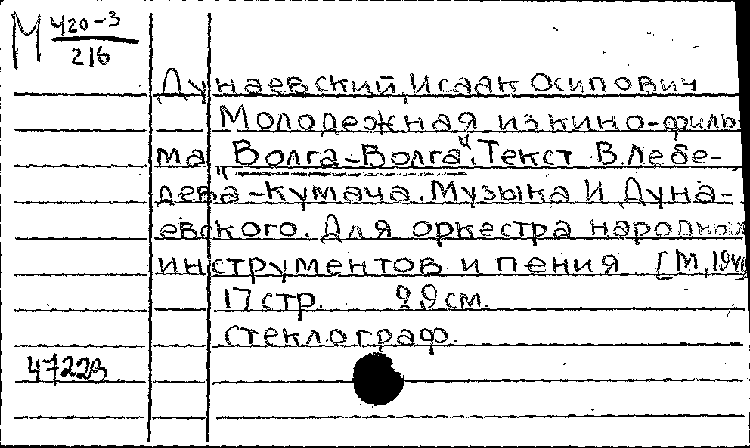 М 420-3
216
Дунаевский, Исаак Осипович
Молодежная из кино-филь-
ма "Волга-Волга". Текст В. Лебе-
дева-Кумача. Музыка И Дуна-
евского. Для оркестра народных
инструментов и пения [М,
17 стр. 29 см.
стеклограф.
47223